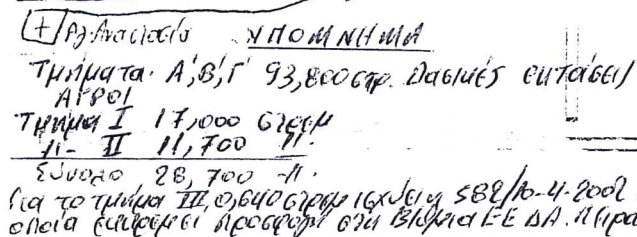 Αγ. Αναστασία ΥΠΟΜΝΗΜΑ
Τμήματα Α',Β',Γ' 93,800 στρ. Δασικές εκτάσεις
ΑΓΡΟΙ
Τμήμα I 17,000 στρεμ
-//- II 11,700 -//-
Σύνολο 28,700 -//-
Για το τμήμα III 0,640 στρεμ ισχύει η 582/10-4-2002
οποία εκκρεμεί προσφυγή στη Β/θμια ΕΕΔΑ. Πειρα